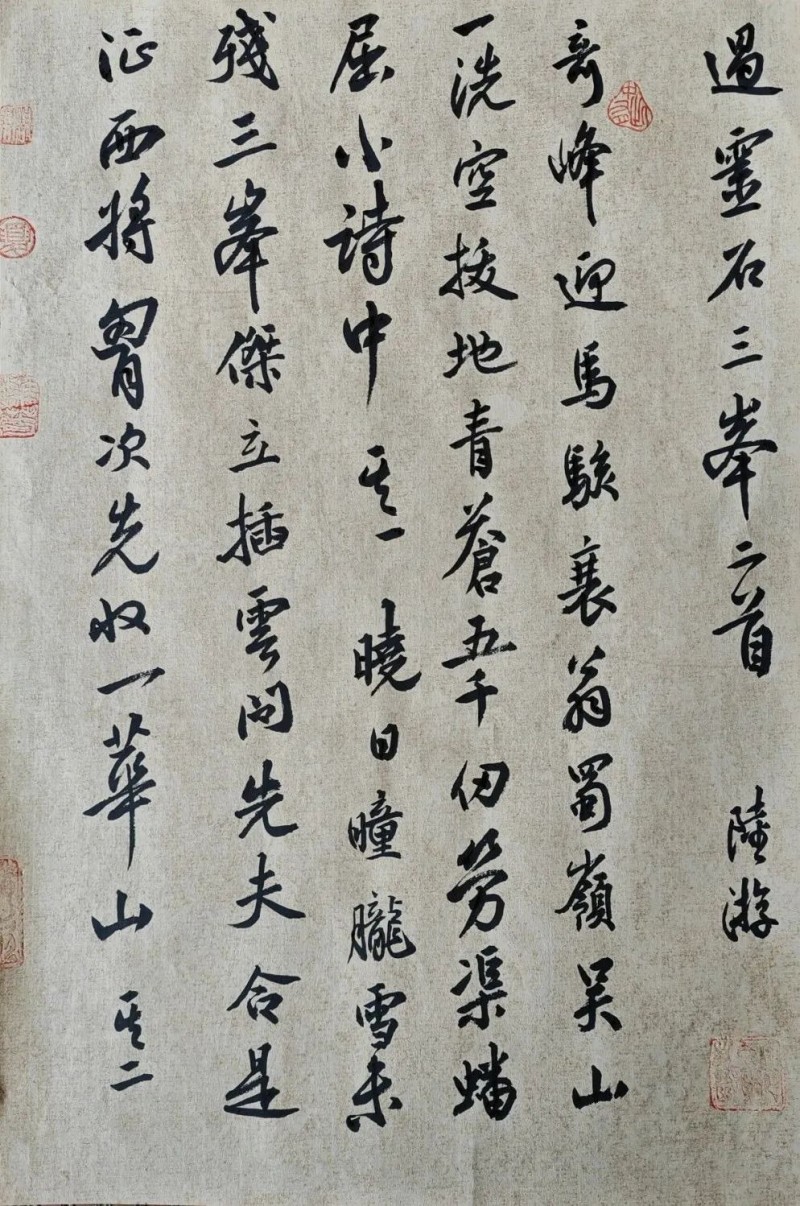 過靈石三峯二首 陸游
奇峰迎馬駭衰翁蜀嶺吴山
一洗空拔地青蒼五千仞勞渠蟠
屈小詩中 其一 曉日曈曨雪未
殘三峯傑立插雲間先夫合是
征西將胷次先收一華山 其二